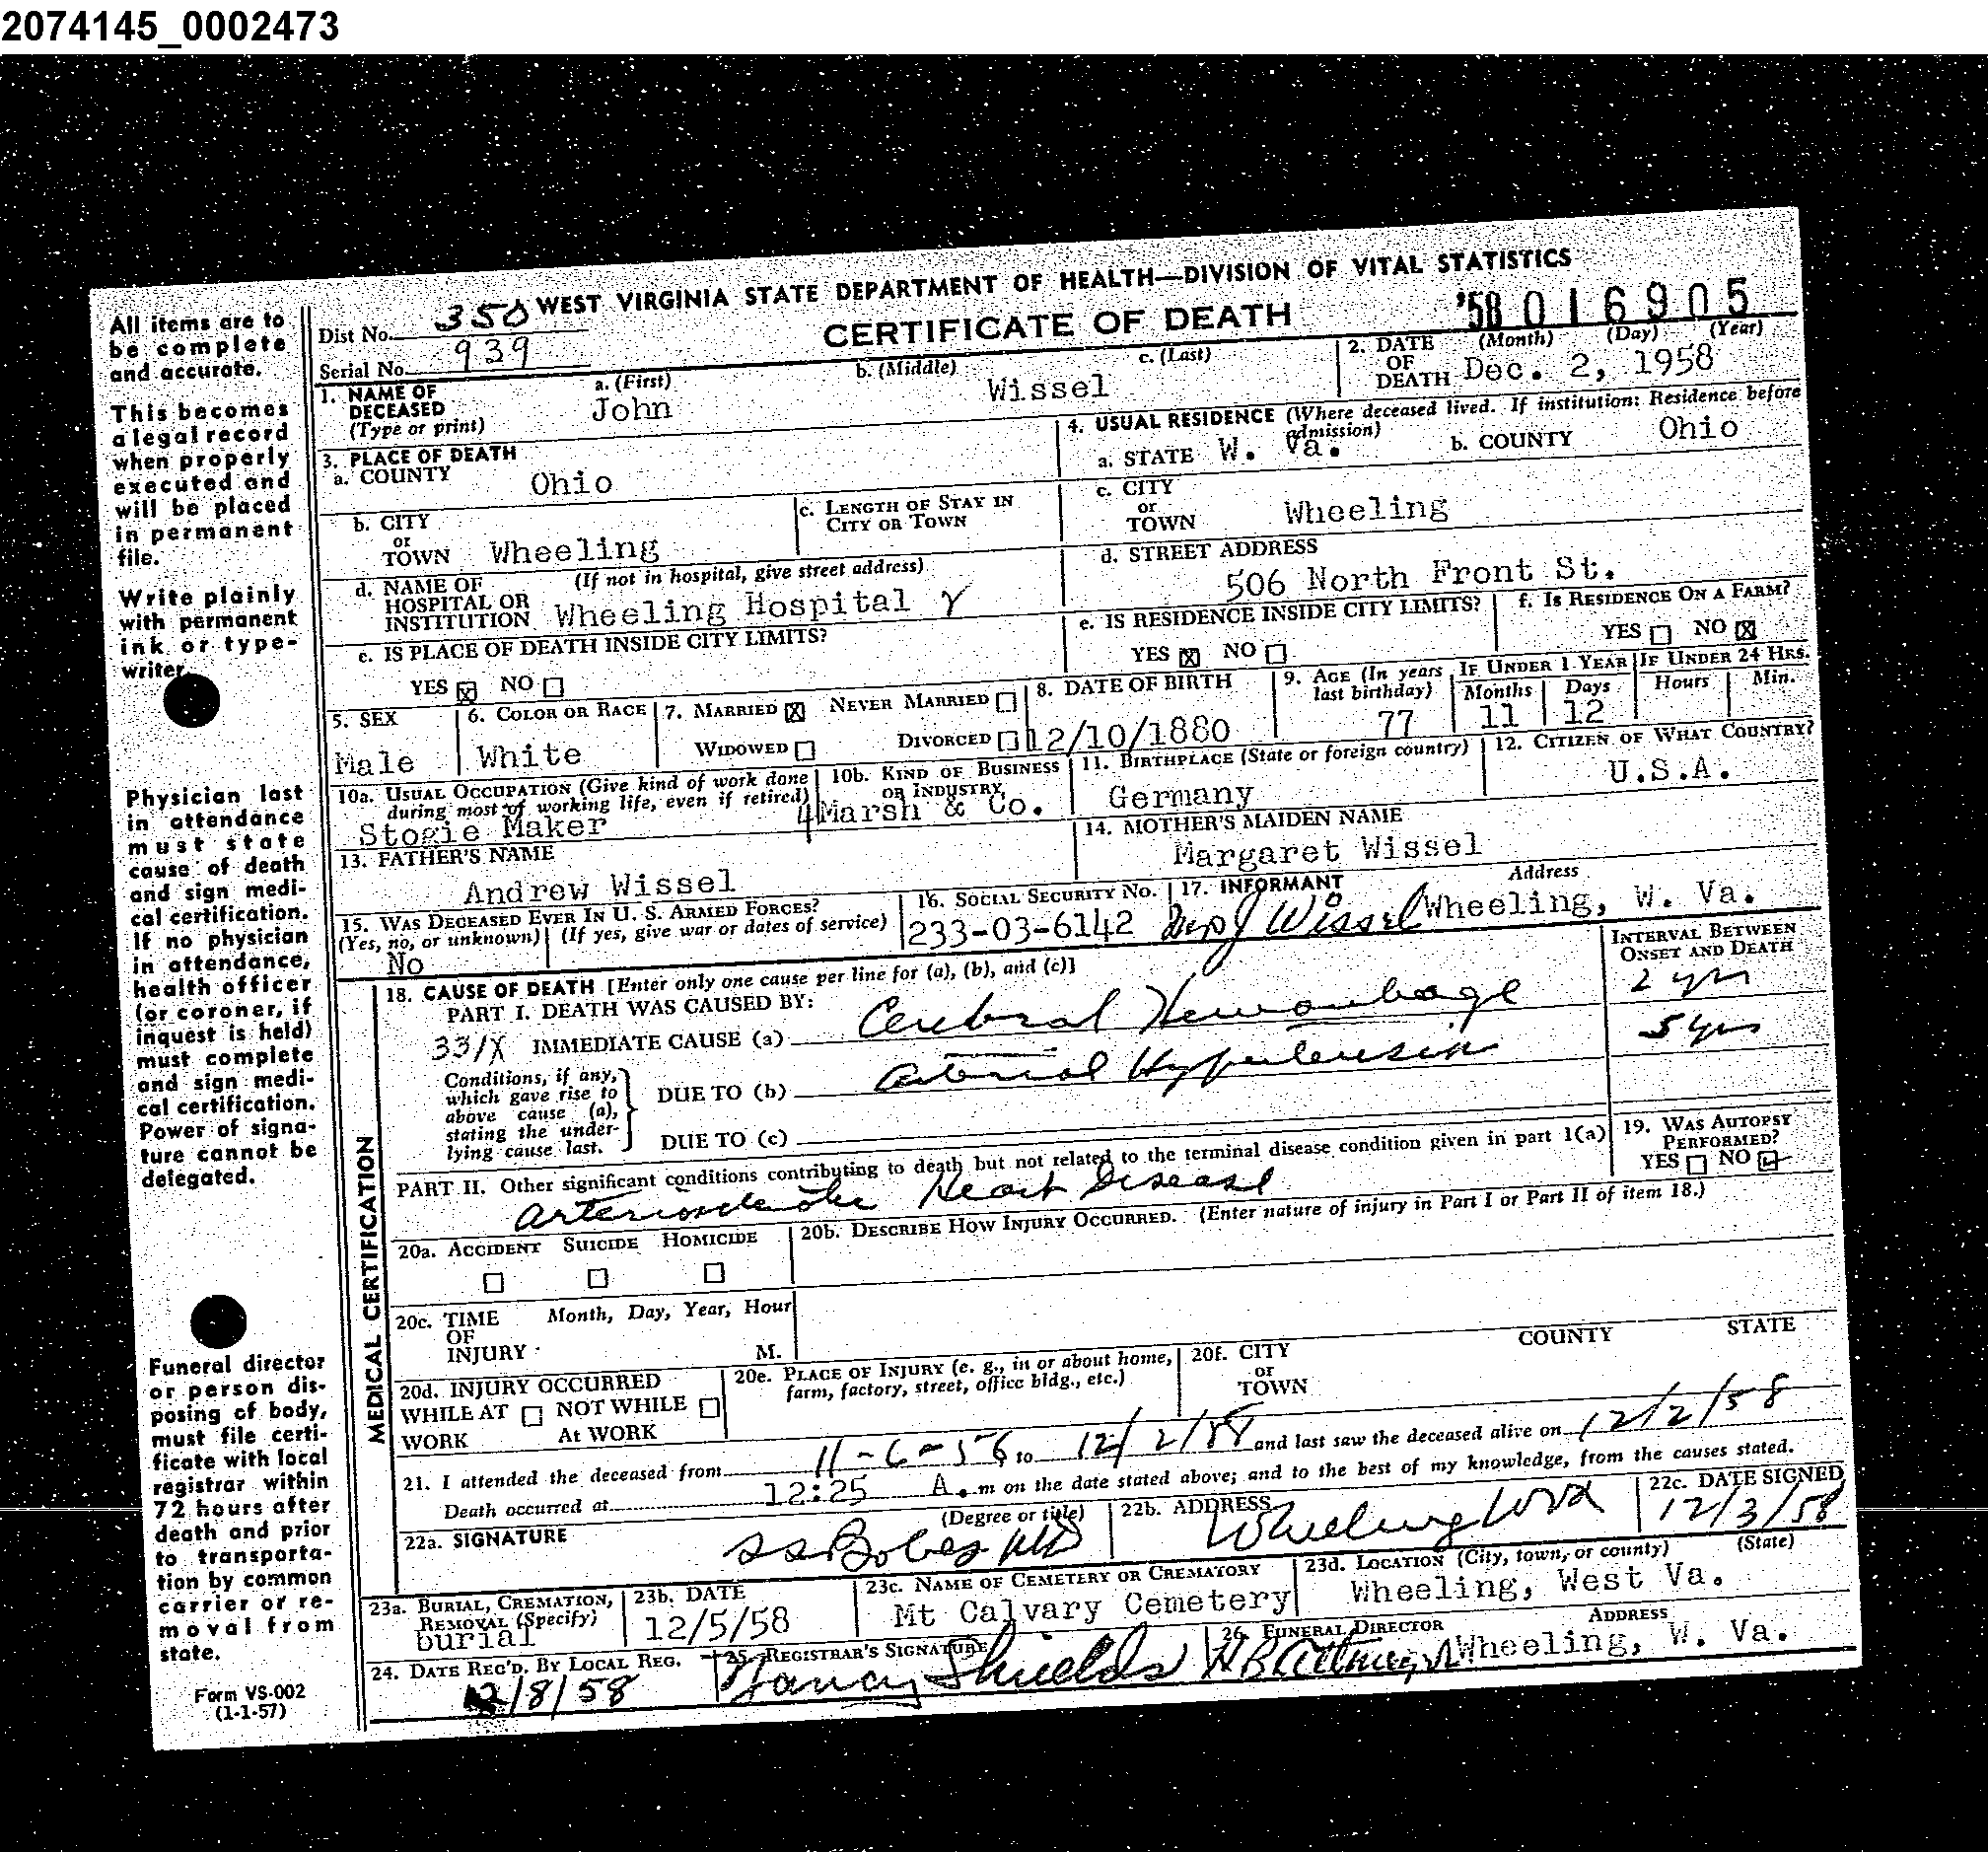 2074145_0002473
WEST VIRGINIA STATE DEPARTMENT OF HEALTH—DIVISION OF VITAL STATISTICS
CERTIFICATE OF DEATH
'58 016905
Dist No. 350
Serial No. 939
All items are to
be complete
and accurate.
This becomes
a legal record
when properly
executed and
will be placed
in permanent
file.
Write plainly
with permanent
ink or type-
writer.
Physician last
in attendance
must state
cause of death
and sign medi-
cal certification.
If no physician
in attendance,
health officer
(or coroner, if
inquest is held)
must complete
and sign medi-
cal certification.
Power of signa-
ture cannot be
delegated.
Funeral director
or person dis-
posing of body,
must file certi-
ficate with local
registrar within
72 hours after
death and prior
to transporta-
tion by common
carrier or re-
moval from
state.
Form VS-002
(1-1-57)
1. NAME OF DECEASED (Type or print) a. (First) b. (Middle) c. (Last)
John Wissel
2. DATE OF DEATH (Month) (Day) (Year)
Dec. 2, 1958
3. PLACE OF DEATH
a. COUNTY Ohio
b. CITY or TOWN Wheeling
c. LENGTH OF STAY IN CITY OR TOWN
d. NAME OF HOSPITAL OR INSTITUTION (If not in hospital, give street address)
Wheeling Hospital Y
e. IS PLACE OF DEATH INSIDE CITY LIMITS?
YES X NO
4. USUAL RESIDENCE (Where deceased lived. If institution: Residence before admission)
a. STATE W. Va. b. COUNTY Ohio
c. CITY or TOWN Wheeling
d. STREET ADDRESS
506 North Front St.
e. IS RESIDENCE INSIDE CITY LIMITS?
YES X NO
f. IS RESIDENCE ON A FARM?
YES NO X
5. SEX
Male
6. COLOR OR RACE
White
7. MARRIED X NEVER MARRIED
WIDOWED DIVORCED
8. DATE OF BIRTH
12/10/1880
9. AGE (In years last birthday)
77
IF UNDER 1 YEAR Months Days
11 12
IF UNDER 24 HRS. Hours Min.
10a. USUAL OCCUPATION (Give kind of work done during most of working life, even if retired)
Stogie Maker
10b. KIND OF BUSINESS OR INDUSTRY
Marsh & Co.
11. BIRTHPLACE (State or foreign country)
Germany
12. CITIZEN OF WHAT COUNTRY?
U.S.A.
13. FATHER'S NAME
Andrew Wissel
14. MOTHER'S MAIDEN NAME
Margaret Wissel
15. WAS DECEASED EVER IN U. S. ARMED FORCES?
(Yes, no, or unknown) (If yes, give war or dates of service)
No
16. SOCIAL SECURITY NO.
233-03-6142
17. INFORMANT Address
J Wissel Wheeling, W. Va.
MEDICAL CERTIFICATION
18. CAUSE OF DEATH [Enter only one cause per line for (a), (b), and (c)]
INTERVAL BETWEEN ONSET AND DEATH
PART I. DEATH WAS CAUSED BY:
331X IMMEDIATE CAUSE (a) Cerebral Hemorrhage 2 yrs
Conditions, if any, which gave rise to above cause (a), stating the under-lying cause last.
DUE TO (b) Arterial Hypertension 5 yrs
DUE TO (c)
PART II. Other significant conditions contributing to death but not related to the terminal disease condition given in part 1(a)
Arteriosclerotic Heart Disease
19. WAS AUTOPSY PERFORMED?
YES NO
20a. ACCIDENT SUICIDE HOMICIDE
20b. DESCRIBE HOW INJURY OCCURRED. (Enter nature of injury in Part I or Part II of item 18.)
20c. TIME OF INJURY Month, Day, Year, Hour
M.
20d. INJURY OCCURRED
WHILE AT WORK NOT WHILE At WORK
20e. PLACE OF INJURY (e. g., in or about home, farm, factory, street, office bldg., etc.)
20f. CITY or TOWN COUNTY STATE
21. I attended the deceased from 11-6-56 to 12/2/58 and last saw the deceased alive on 12/2/58
Death occurred at 12:25 A.m on the date stated above; and to the best of my knowledge, from the causes stated.
22a. SIGNATURE (Degree or title)
MD
22b. ADDRESS
Wheeling W Va
22c. DATE SIGNED
12/3/58
23a. BURIAL, CREMATION, REMOVAL (Specify)
burial
23b. DATE
12/5/58
23c. NAME OF CEMETERY OR CREMATORY
Mt Calvary Cemetery
23d. LOCATION (City, town, or county) (State)
Wheeling, West Va.
24. DATE REC'D. BY LOCAL REG.
12/8/58
25. REGISTRAR'S SIGNATURE
Nancy Shields
26. FUNERAL DIRECTOR ADDRESS
Wheeling, W. Va.